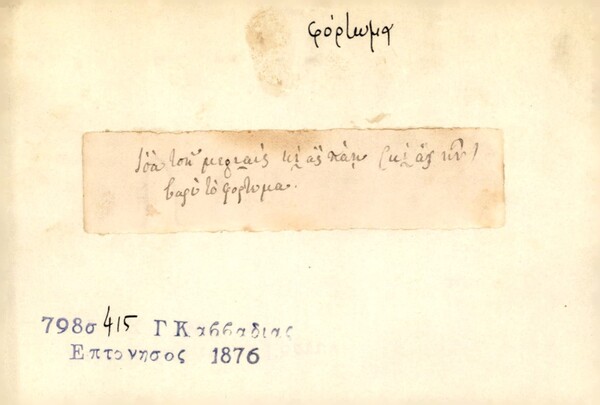 φόρτωμα
Ἴσα τσῆ μεριαὶς κι ἂς πάῃ (κι ἂς ἦν)
βαρὺ τὸ φόρτωμα.
798σ 415 Γ Καββαδιας
Επτονησος 1876